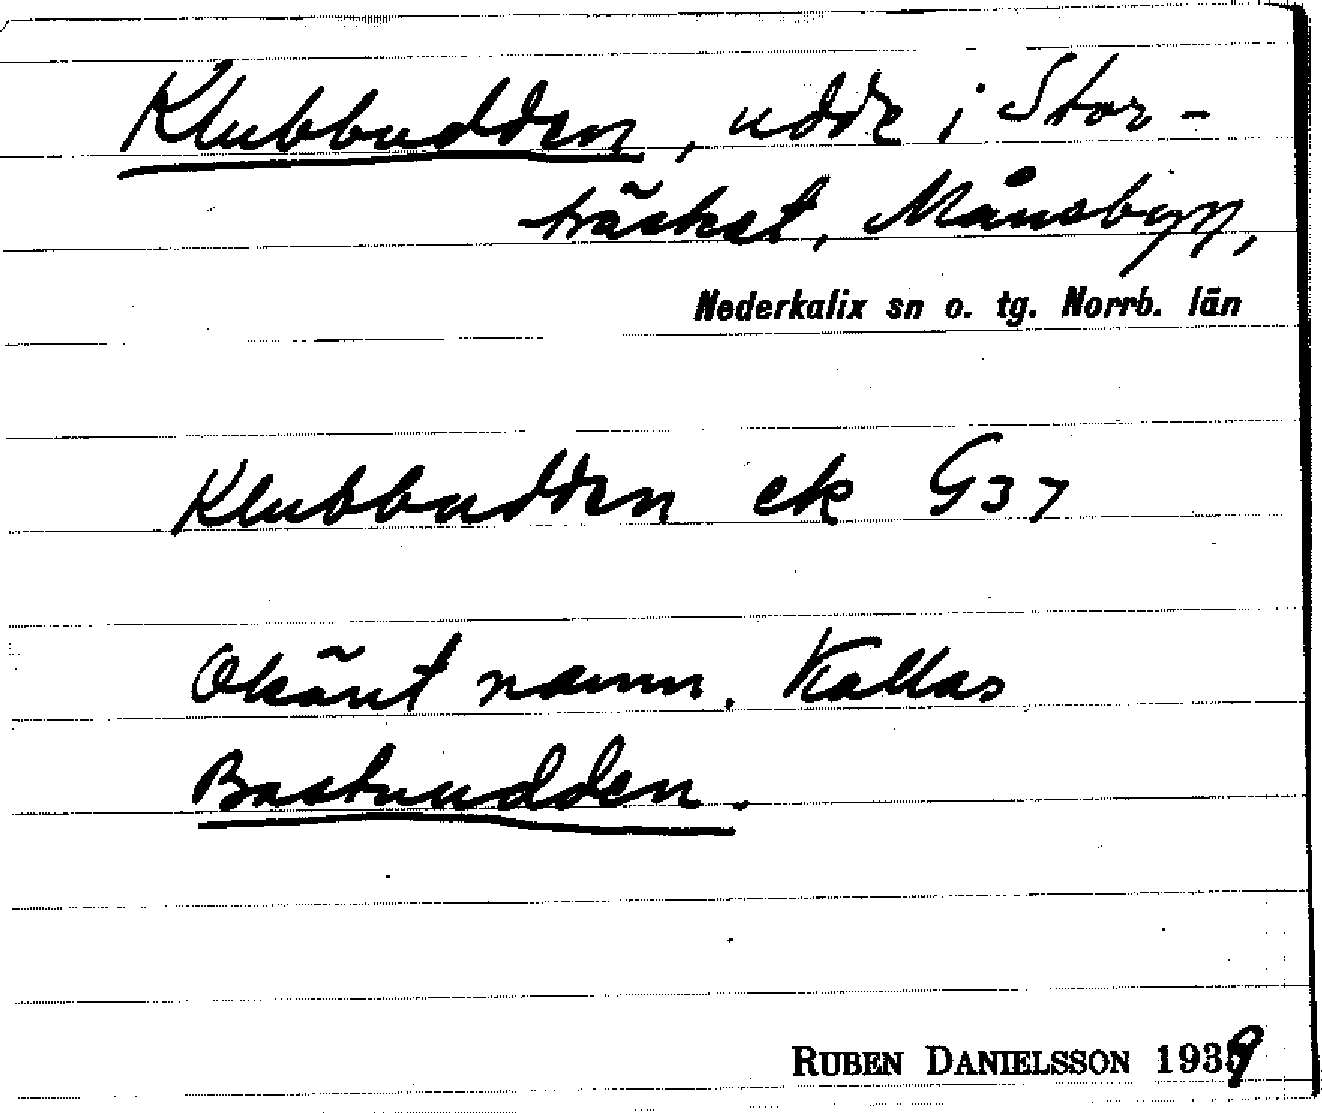 Klubbudden, udde i Stor-
träsket, Månsbyn,
Nederkalix sn o. tg. Norrb. län
Klubbudden ek G37
Okänt namn. Kallas
Bastuudden.
RUBEN DANIELSSON 1939